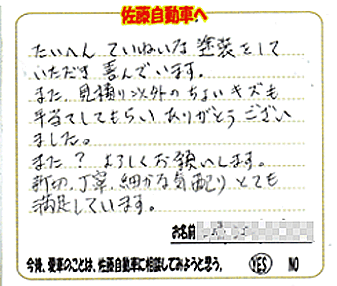 佐藤自動車へ
たいへん ていねいな 塗装をして
いただき 喜んでいます。
また、見積り以外のちょいキズも
手当てしてもらい ありがとうござい
ました。
また? よろしくお願いします。
親切、丁寧、細かな気配り とても
満足しています。
お名前
今後、愛車のことは、佐藤自動車に相談してみようと思う。 YES NO